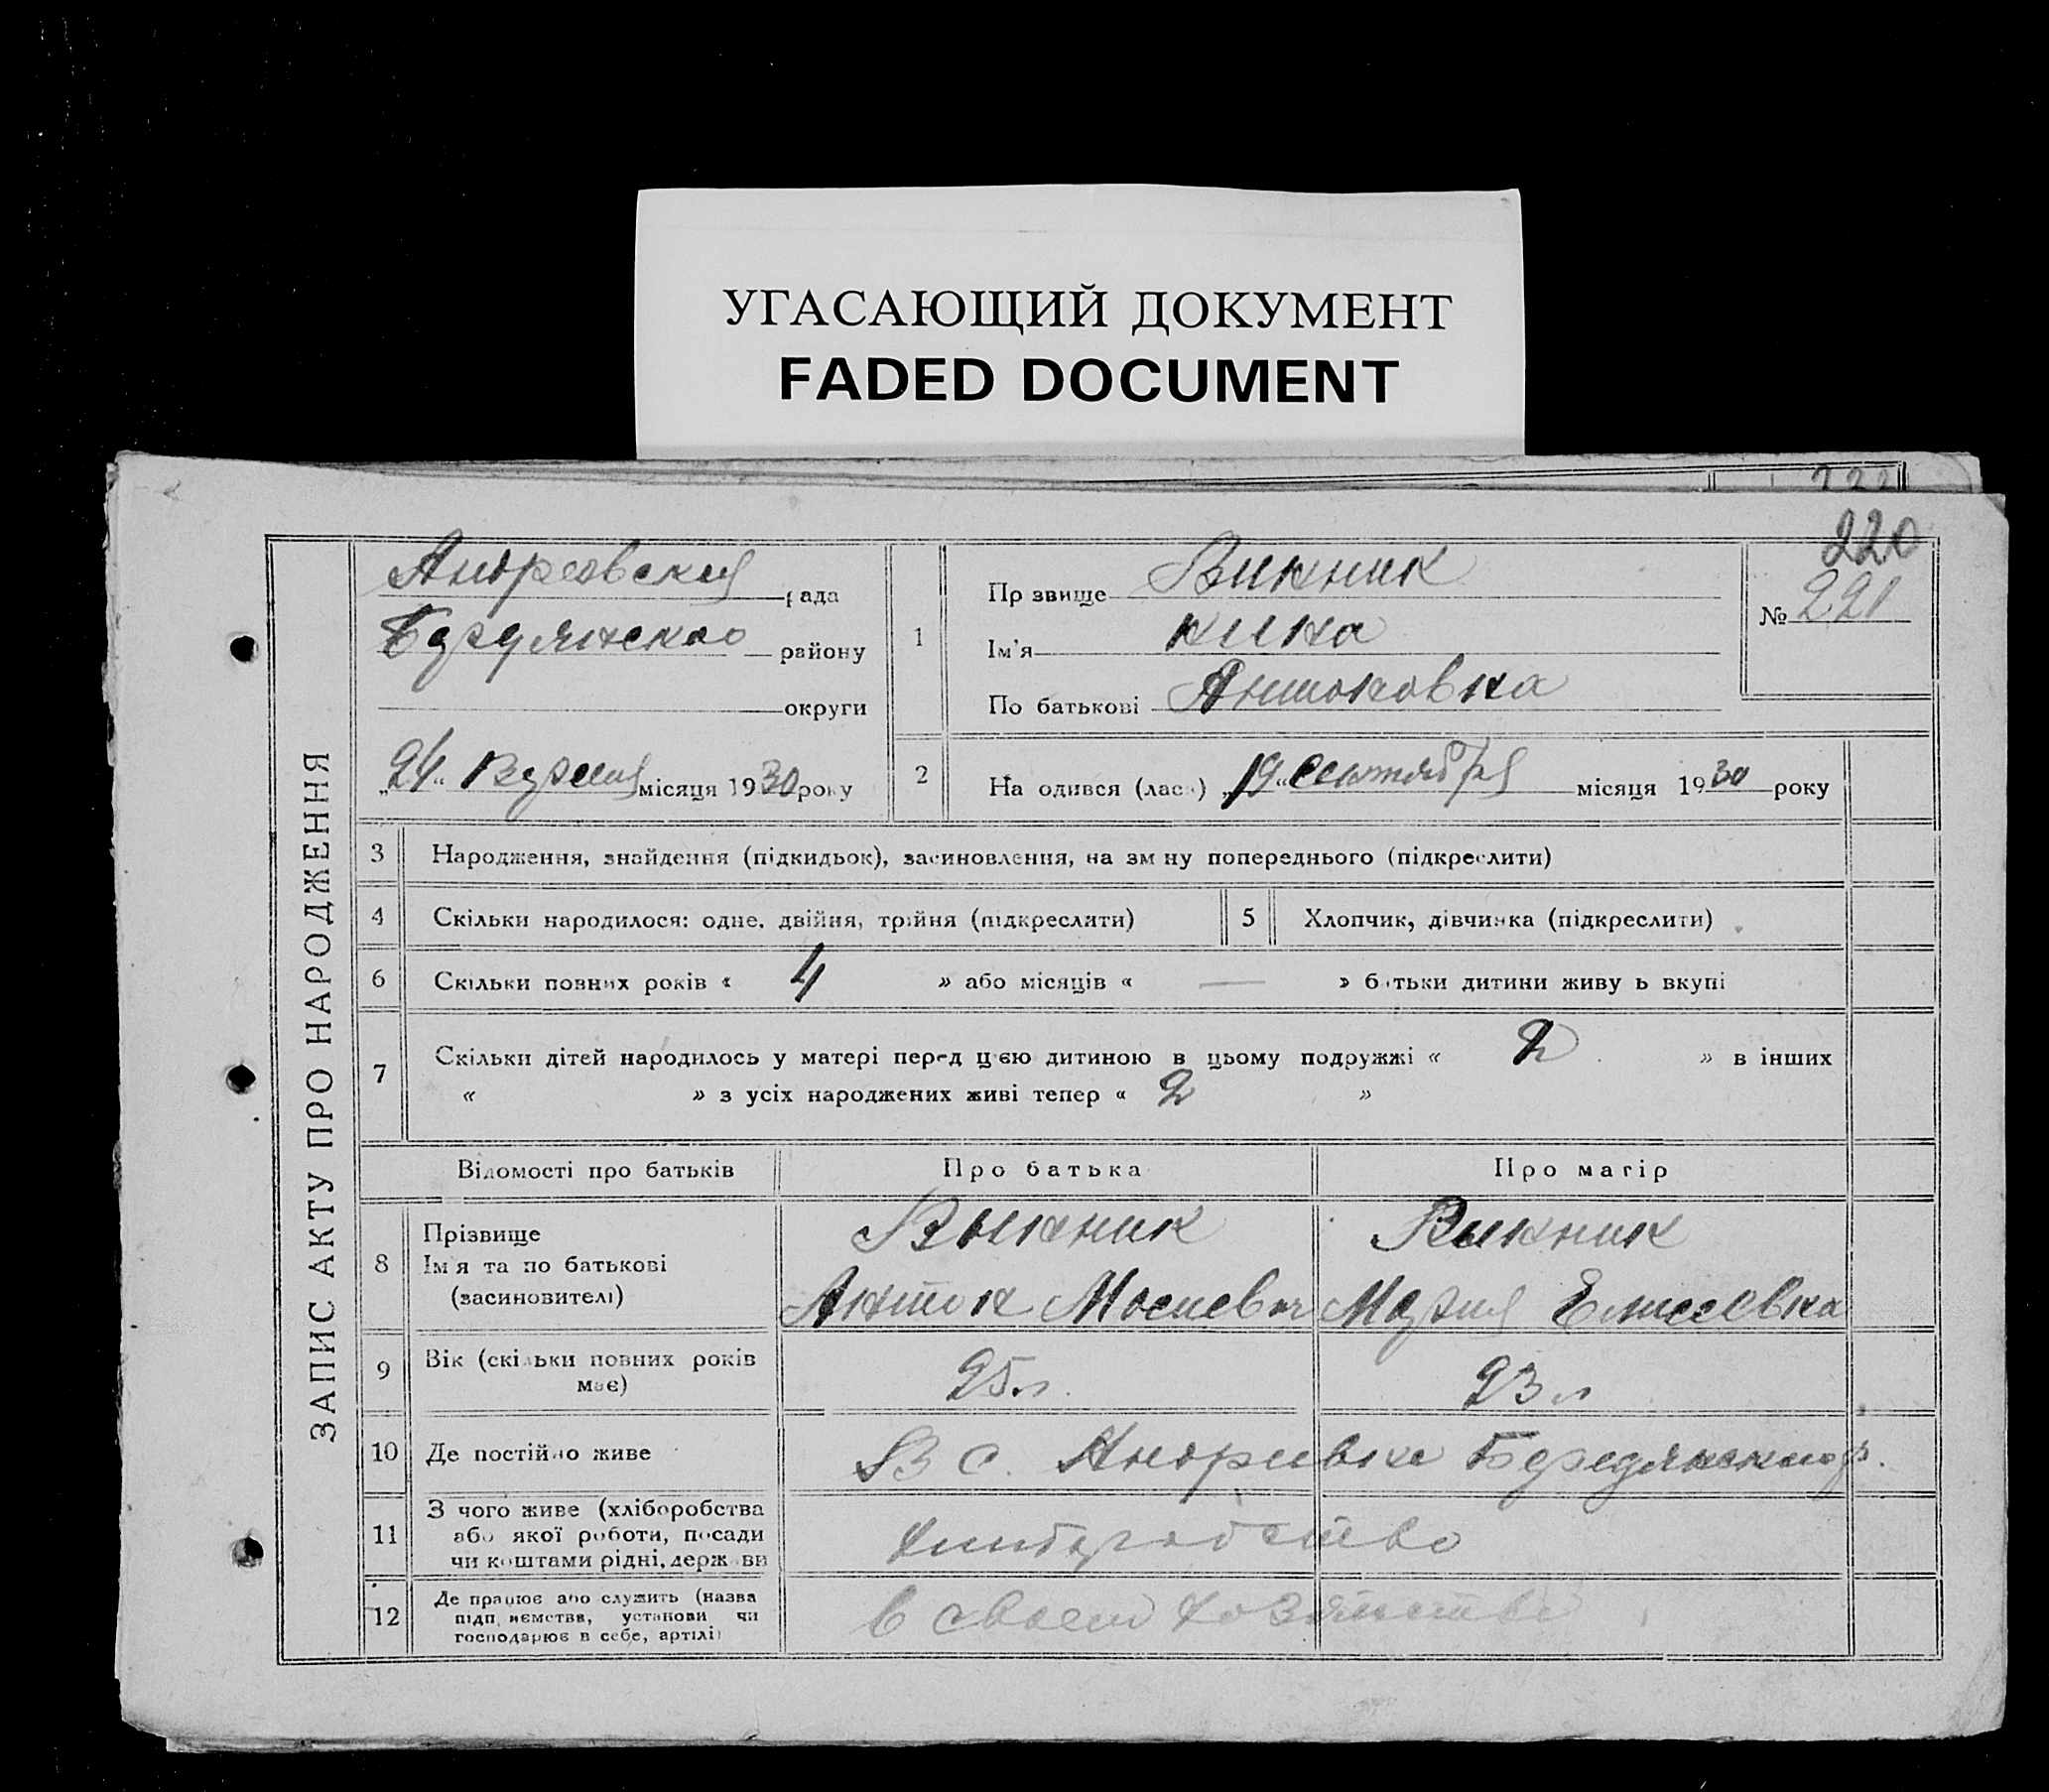 УГАСАЮЩИЙ ДОКУМЕНТ
FADED DOCUMENT
220
ЗАПИС АКТУ ПРО НАРОДЖЕННЯ
Андреевская рада
Бердянского району
округи
„24“ Вересня місяця 1930 року
1
Прізвище Викник
Ім'я Нина
По батькові Антоновна
№ 221
2 Народився (лася) „19“ Сентября місяця 1930 року
3 Народження, знайдення (підкидьок), засиновлення, на зміну попереднього (підкреслити)
4 Скільки народилося: одне, двійня, трійня (підкреслити) 5 Хлопчик, дівчинка (підкреслити)
6 Скільки повних років « 4 » або місяців « — » батьки дитини живуть вкупі
7 Скільки дітей народилось у матері перед цією дитиною в цьому подружжі « 2 » в інших
« » з усіх народжених живі тепер « 2 »
Відомості про батьків Про батька Про матір
8 Прізвище Выкник Викник
Ім'я та по батькові
(засиновителі) Антон Мосиевич Мария Елисеевна
9 Вік (скільки повних років має) 25 л. 23 л
10 Де постійно живе В с. Андриевке Бердянского р.
11 З чого живе (хліборобства
або якої роботи, посади
чи коштами рідні, держави
12 Де працює або служить (назва
підприємства, установи чи
господарює в себе, артілі)
в своем хозяйстве